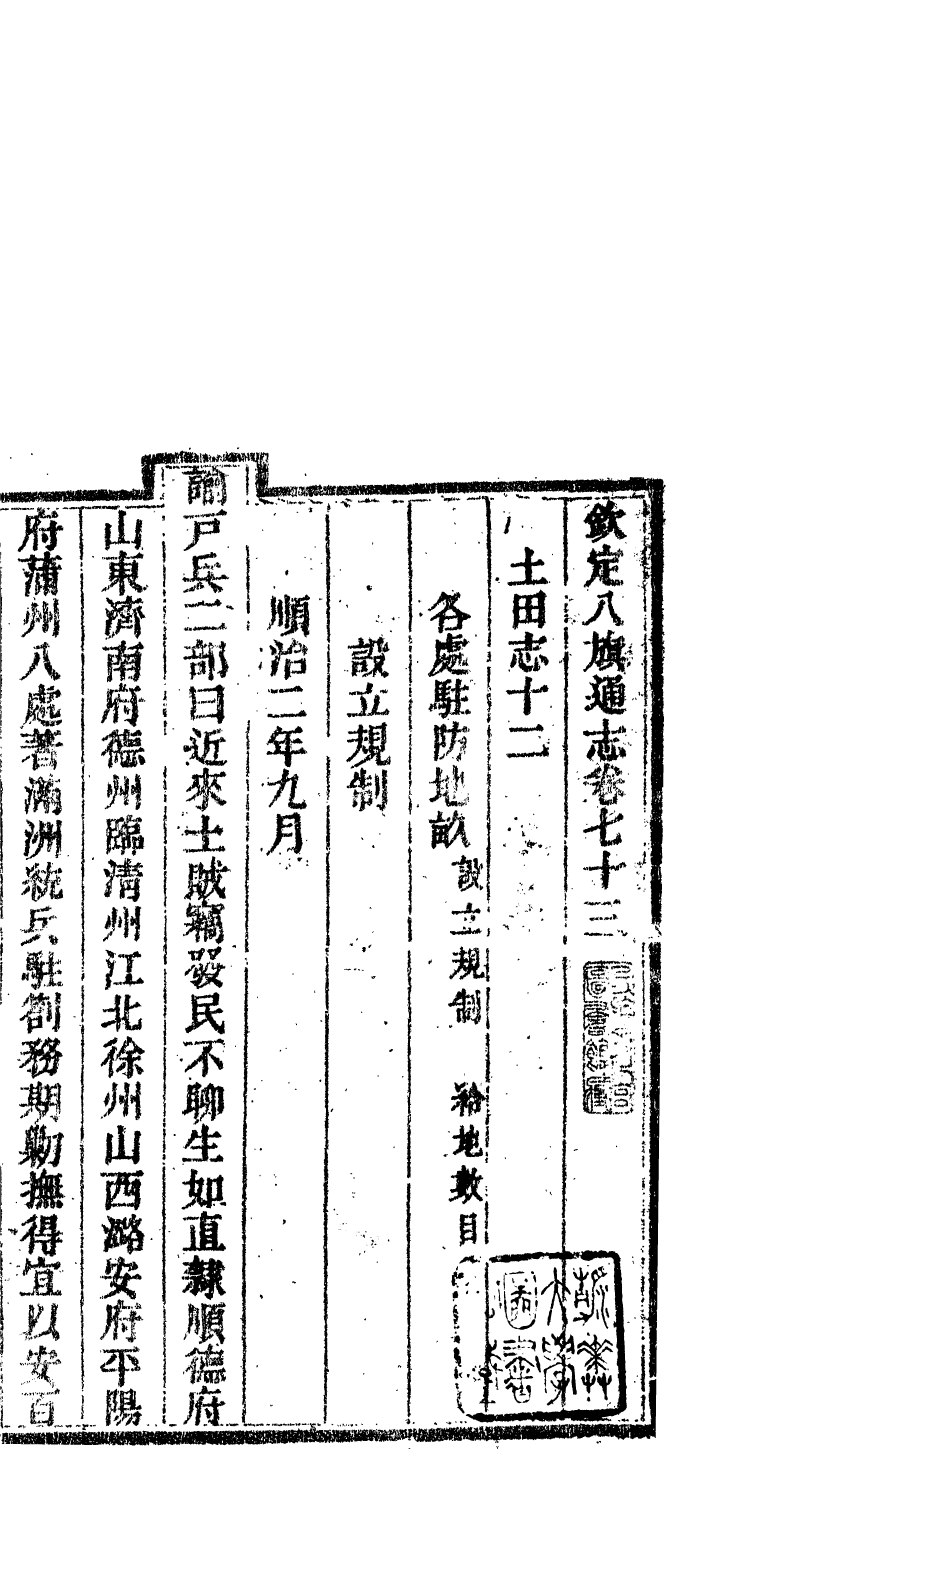 欽定八旗通志卷七十三
土田志十二
各處駐防地畝 設立規制 給地數目
設立規制
順治二年九月
諭戸兵二部曰近來土賊竊發民不聊生如直隸順德府
山東濟南府德州臨清州江北徐州山西潞安府平陽
府蒲州八處著滿洲統兵駐劄務期勦撫得宜以安百